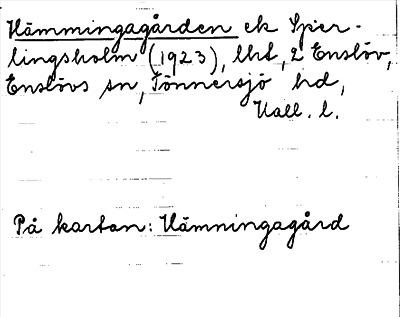 Hämmingagården ek Spier-
lingsholm (1923), lht, 2 Enslöv,
Enslövs sn, Tönnersjö hd,
Hall. l.
På kartan: Hämningagård